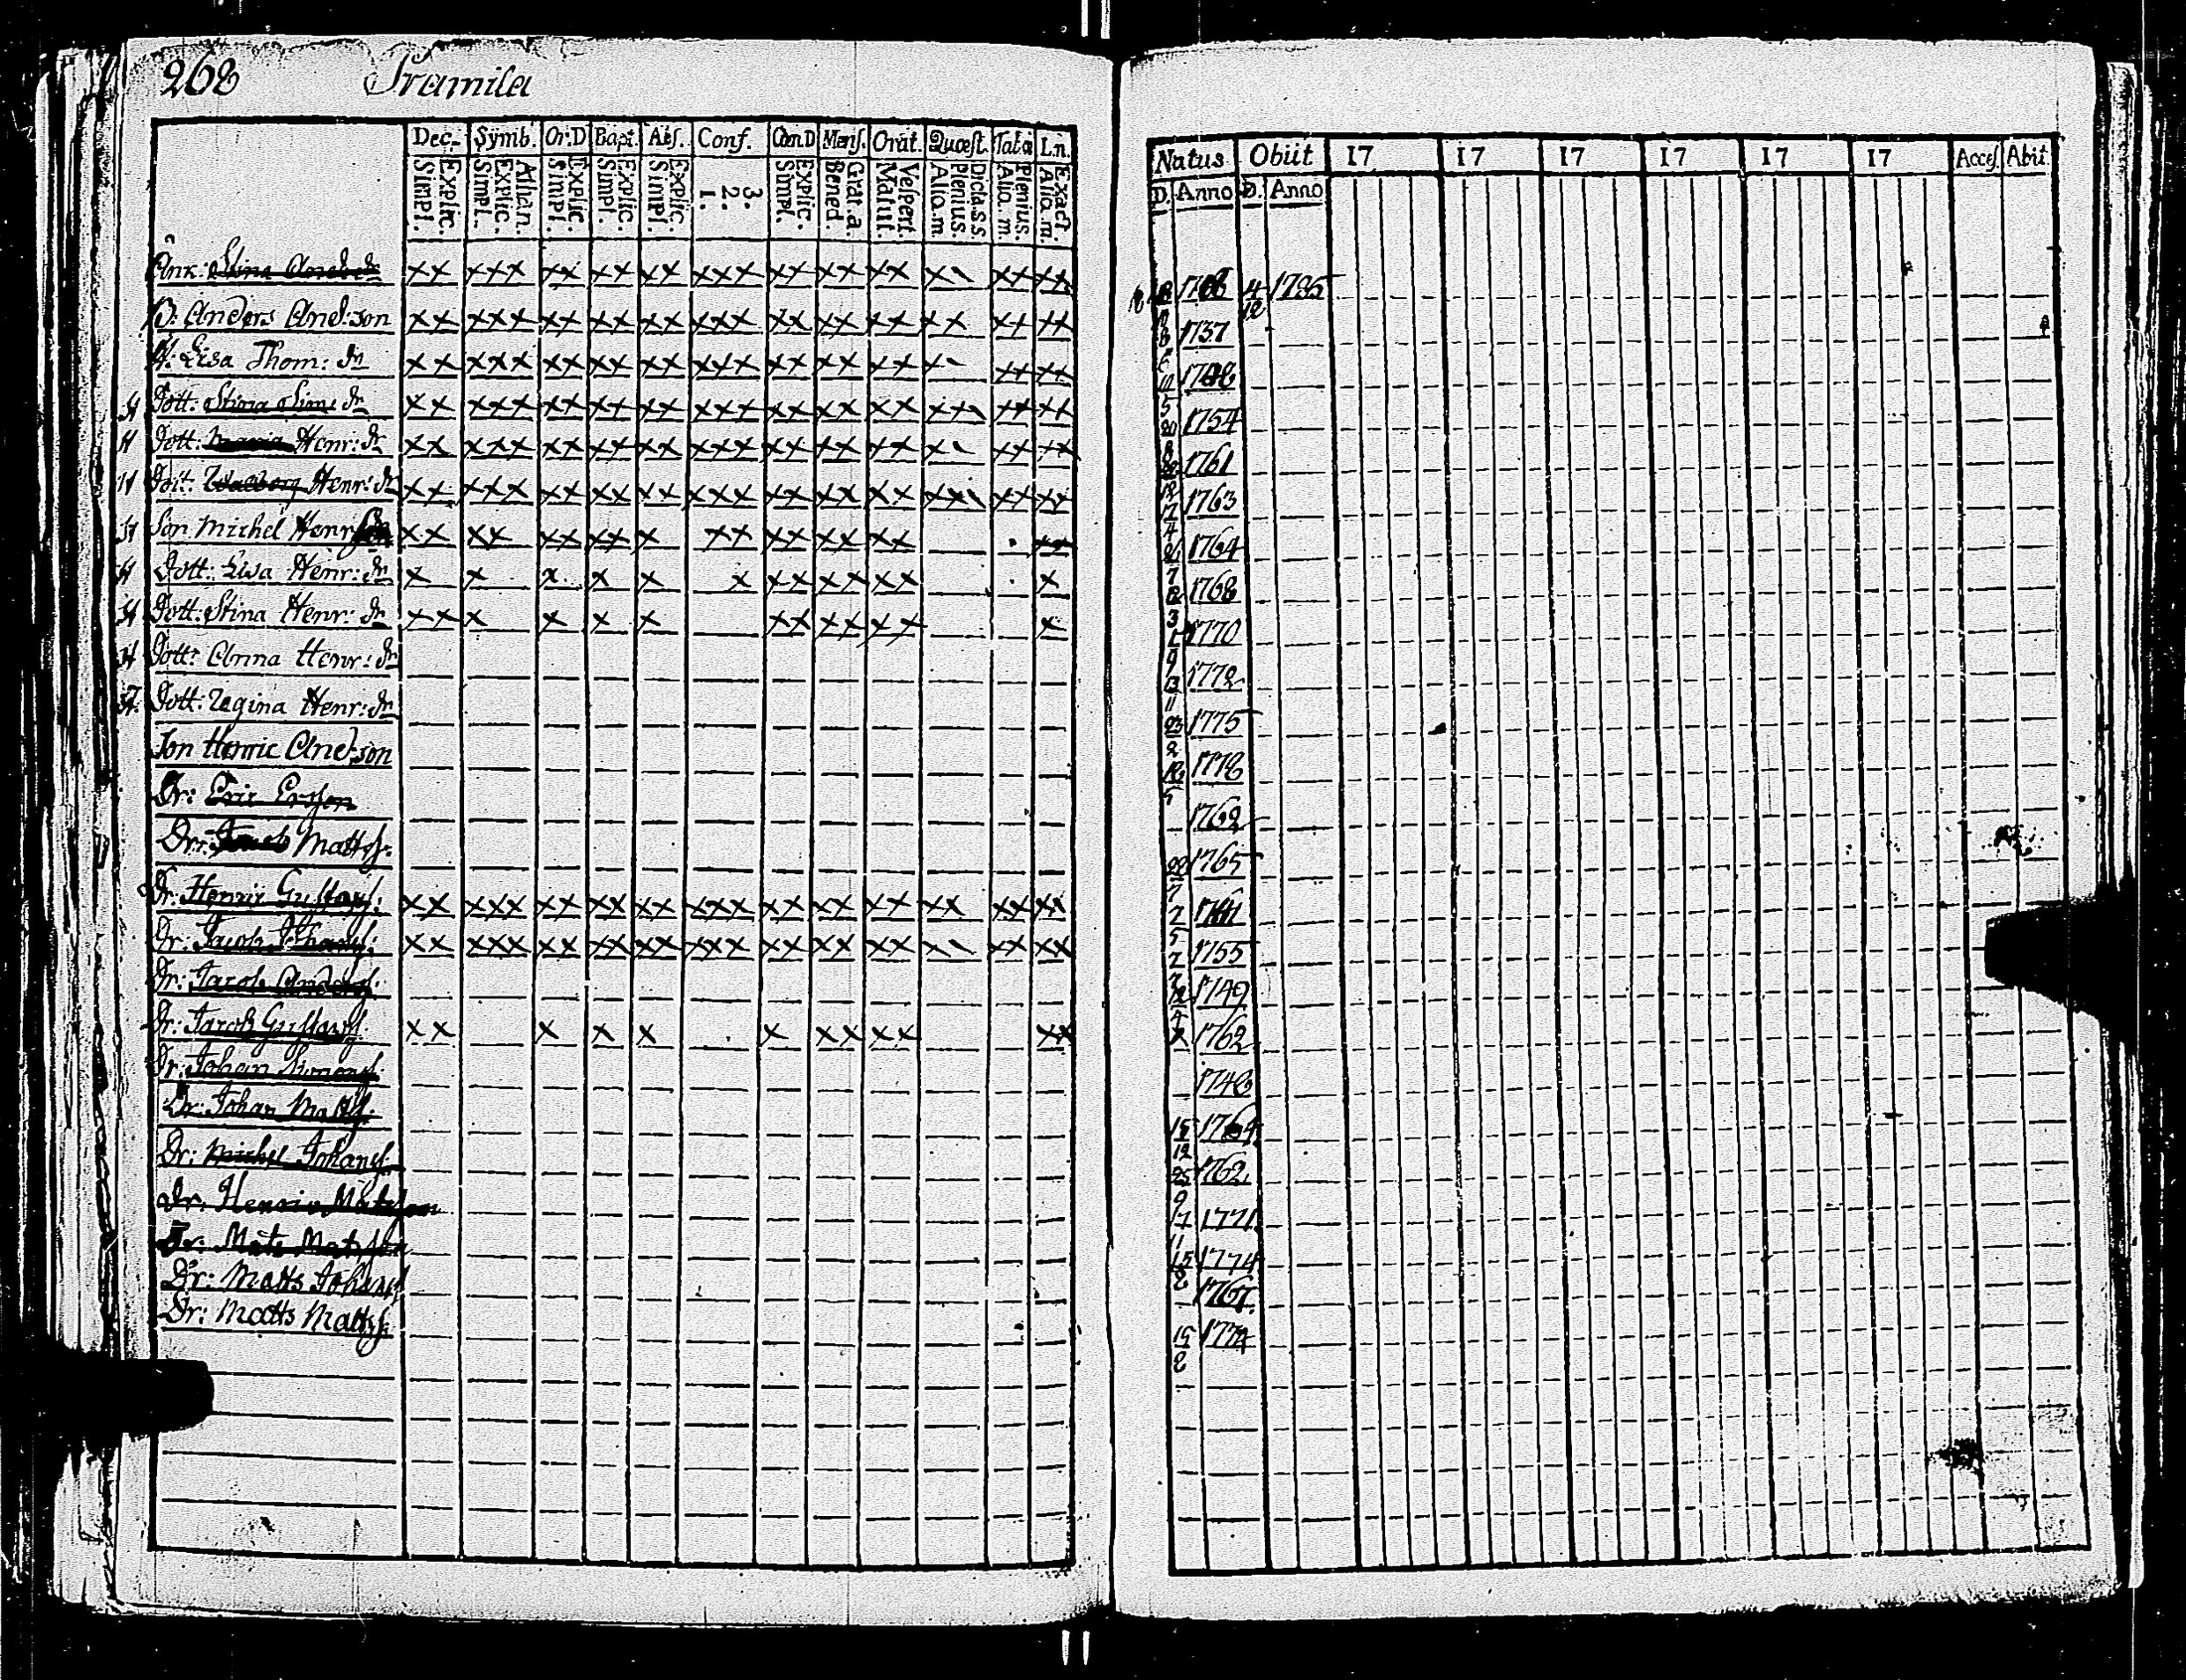 268 Tramila
Dec. Symb. Or:D Bapt. Abs. Conf. Cœn.D Mens. Orat. Quæst. Tab.œ Ln.
Explic. Simpl. Athan. Explic. Simpl. Explic. Simpl. Explic. Simpl. Explic. Simpl. 3. 2. 1. Explic. Simpl. Grat. a. Bened. Vespert. Matut. Dicta.s.s. Plenius. Alio.m. Plenius. Alio.m. Exact. Alio.m.
Enk: Stina And: dr xx xxx xx xx xx xxx xx xx xx x xx xx
B: Anders And:son xx xxx xx xx xx xxx xx xx xx xx xx xx
H: Lisa Thom: dr xx xxx xx xx xx xxx xx xx xx x xx xx
Dott: Stina Sim: dr xx xxx xx xx xx xxx xx xx xx xx xx xx
Dott: Maria Henr: dr xx xxx xx xx xx xxx xx xx xx x xx xx
Dott: Walborg Henr: dr xx xxx xx xx xx xxx xx xx xx xx xx xx
Son Michel Henrson xx xx xx xx x xx xx xx xx xx
Dott: Lisa Henr: dr x x x x x x xx xx xx x
Dott: Stina Henr: dr xx x x x x xx xx xx x
Dott: Anna Henr: dr
Dott: Regina Henr: dr
Son Henric And:son
Dr: Eric Ersson
Dr: Matts.
Dr: Henric Gustavs: xx xxx xx xx xx xxx xx xx xx xx xx xx
Dr: Jacob Johans: xx xxx xx xx xx xxx xx xx xx x xx xx
Dr: Jacob Anders:
Dr: Jacob Gustavs. xx x x x x xx xx xx
Dr: Johan Simons.
Dr: Johan Matts.
Dr: Michel Johans.
Dr: Henric Matsson
Dr: Mats Matsson
Dr: Matts Johans.
Dr: Matts Matts.
Natus Obiit 17 17 17 17 17 17 Acces. Abit.
D. Anno D. Anno
4/12 1785
1737
1754
1761
1763
1764
1768
1770
1772
1775
1778
1762
1765
1741
1755
1749
1762
1748
1762
1771
1774
1767
1774